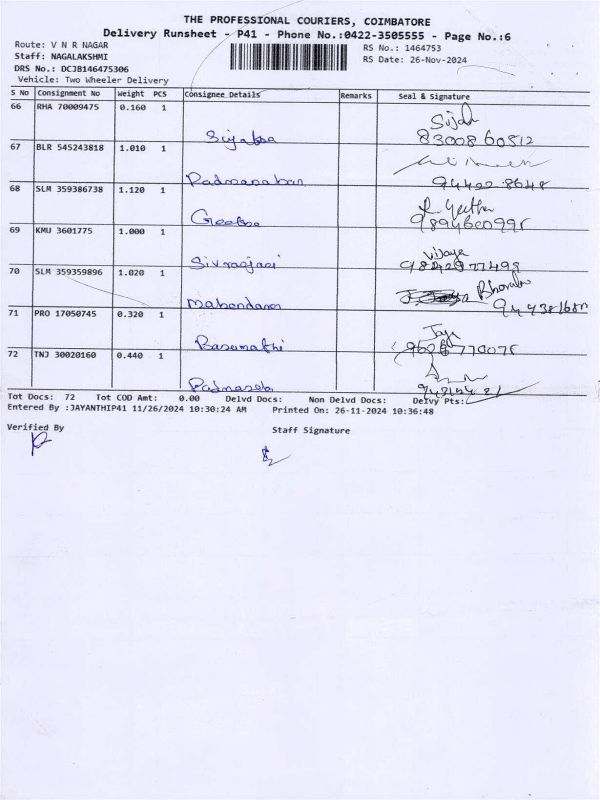 THE PROFESSIONAL COURIERS, COIMBATORE
Delivery Runsheet - P41 - Phone No.:0422-3505555 - Page No.:6
Route: V N R NAGAR
RS No.: 1464753
Staff: NAGALAKSHMI
RS Date: 26-Nov-2024
DRS No.: DCJB146475306
Vehicle: Two Wheeler Delivery
S No Consignment No Weight PCS Consignee Details Remarks Seal & Signature
66 RHA 70009475 0.160 1
Sujatha
Sujah
83008 60512
67 BLR 545243818 1.010 1
Padmanaban
94422 8648
68 SLM 359386738 1.120 1
Geetha
R Geetha
9894600995
69 KMU 3601775 1.000 1
Sivraajani
Vijaya
9842977499
70 SLM 359359896 1.020 1
Mahendaran
71 PRO 17050745 0.320 1
Basumathi
Jaya
72 TNJ 30020160 0.440 1
Tot Docs: 72 Tot COD Amt: 0.00 Delvd Docs: Non Delvd Docs: Delvy Pts:
Entered By :JAYANTHIP41 11/26/2024 10:30:24 AM Printed On: 26-11-2024 10:36:48
Verified By
Staff Signature